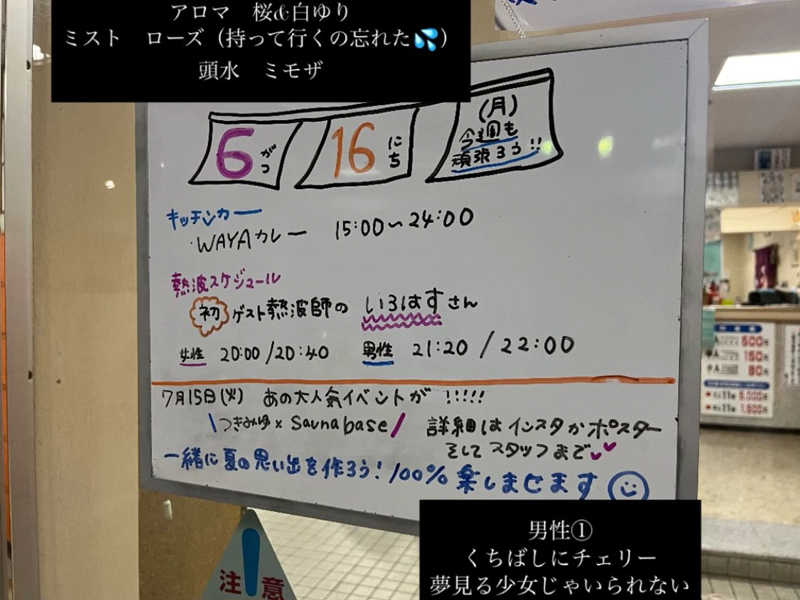 アロマ　桜&白ゆり
ミスト　ローズ（持って行くの忘れた💦）
頭水　ミモザ
6がつ 16にち (月)
今週も
頑張ろう!!
キッチンカー
WAYAカレー 15:00〜24:00
熱波スケジュール
初 ゲスト熱波師の いろはすさん
女性 20:00/20:40 男性 21:20/22:00
7月15日(火) あの大人気イベントが!!!!!
\つきみゆ×Saunabase/ 詳細はインスタかポスター
そしてスタッフまで
一緒に夏の思い出を作ろう!100%楽しませます
注意
500円
150円
80円
男性①
くちばしにチェリー
夢見る少女じゃいられない